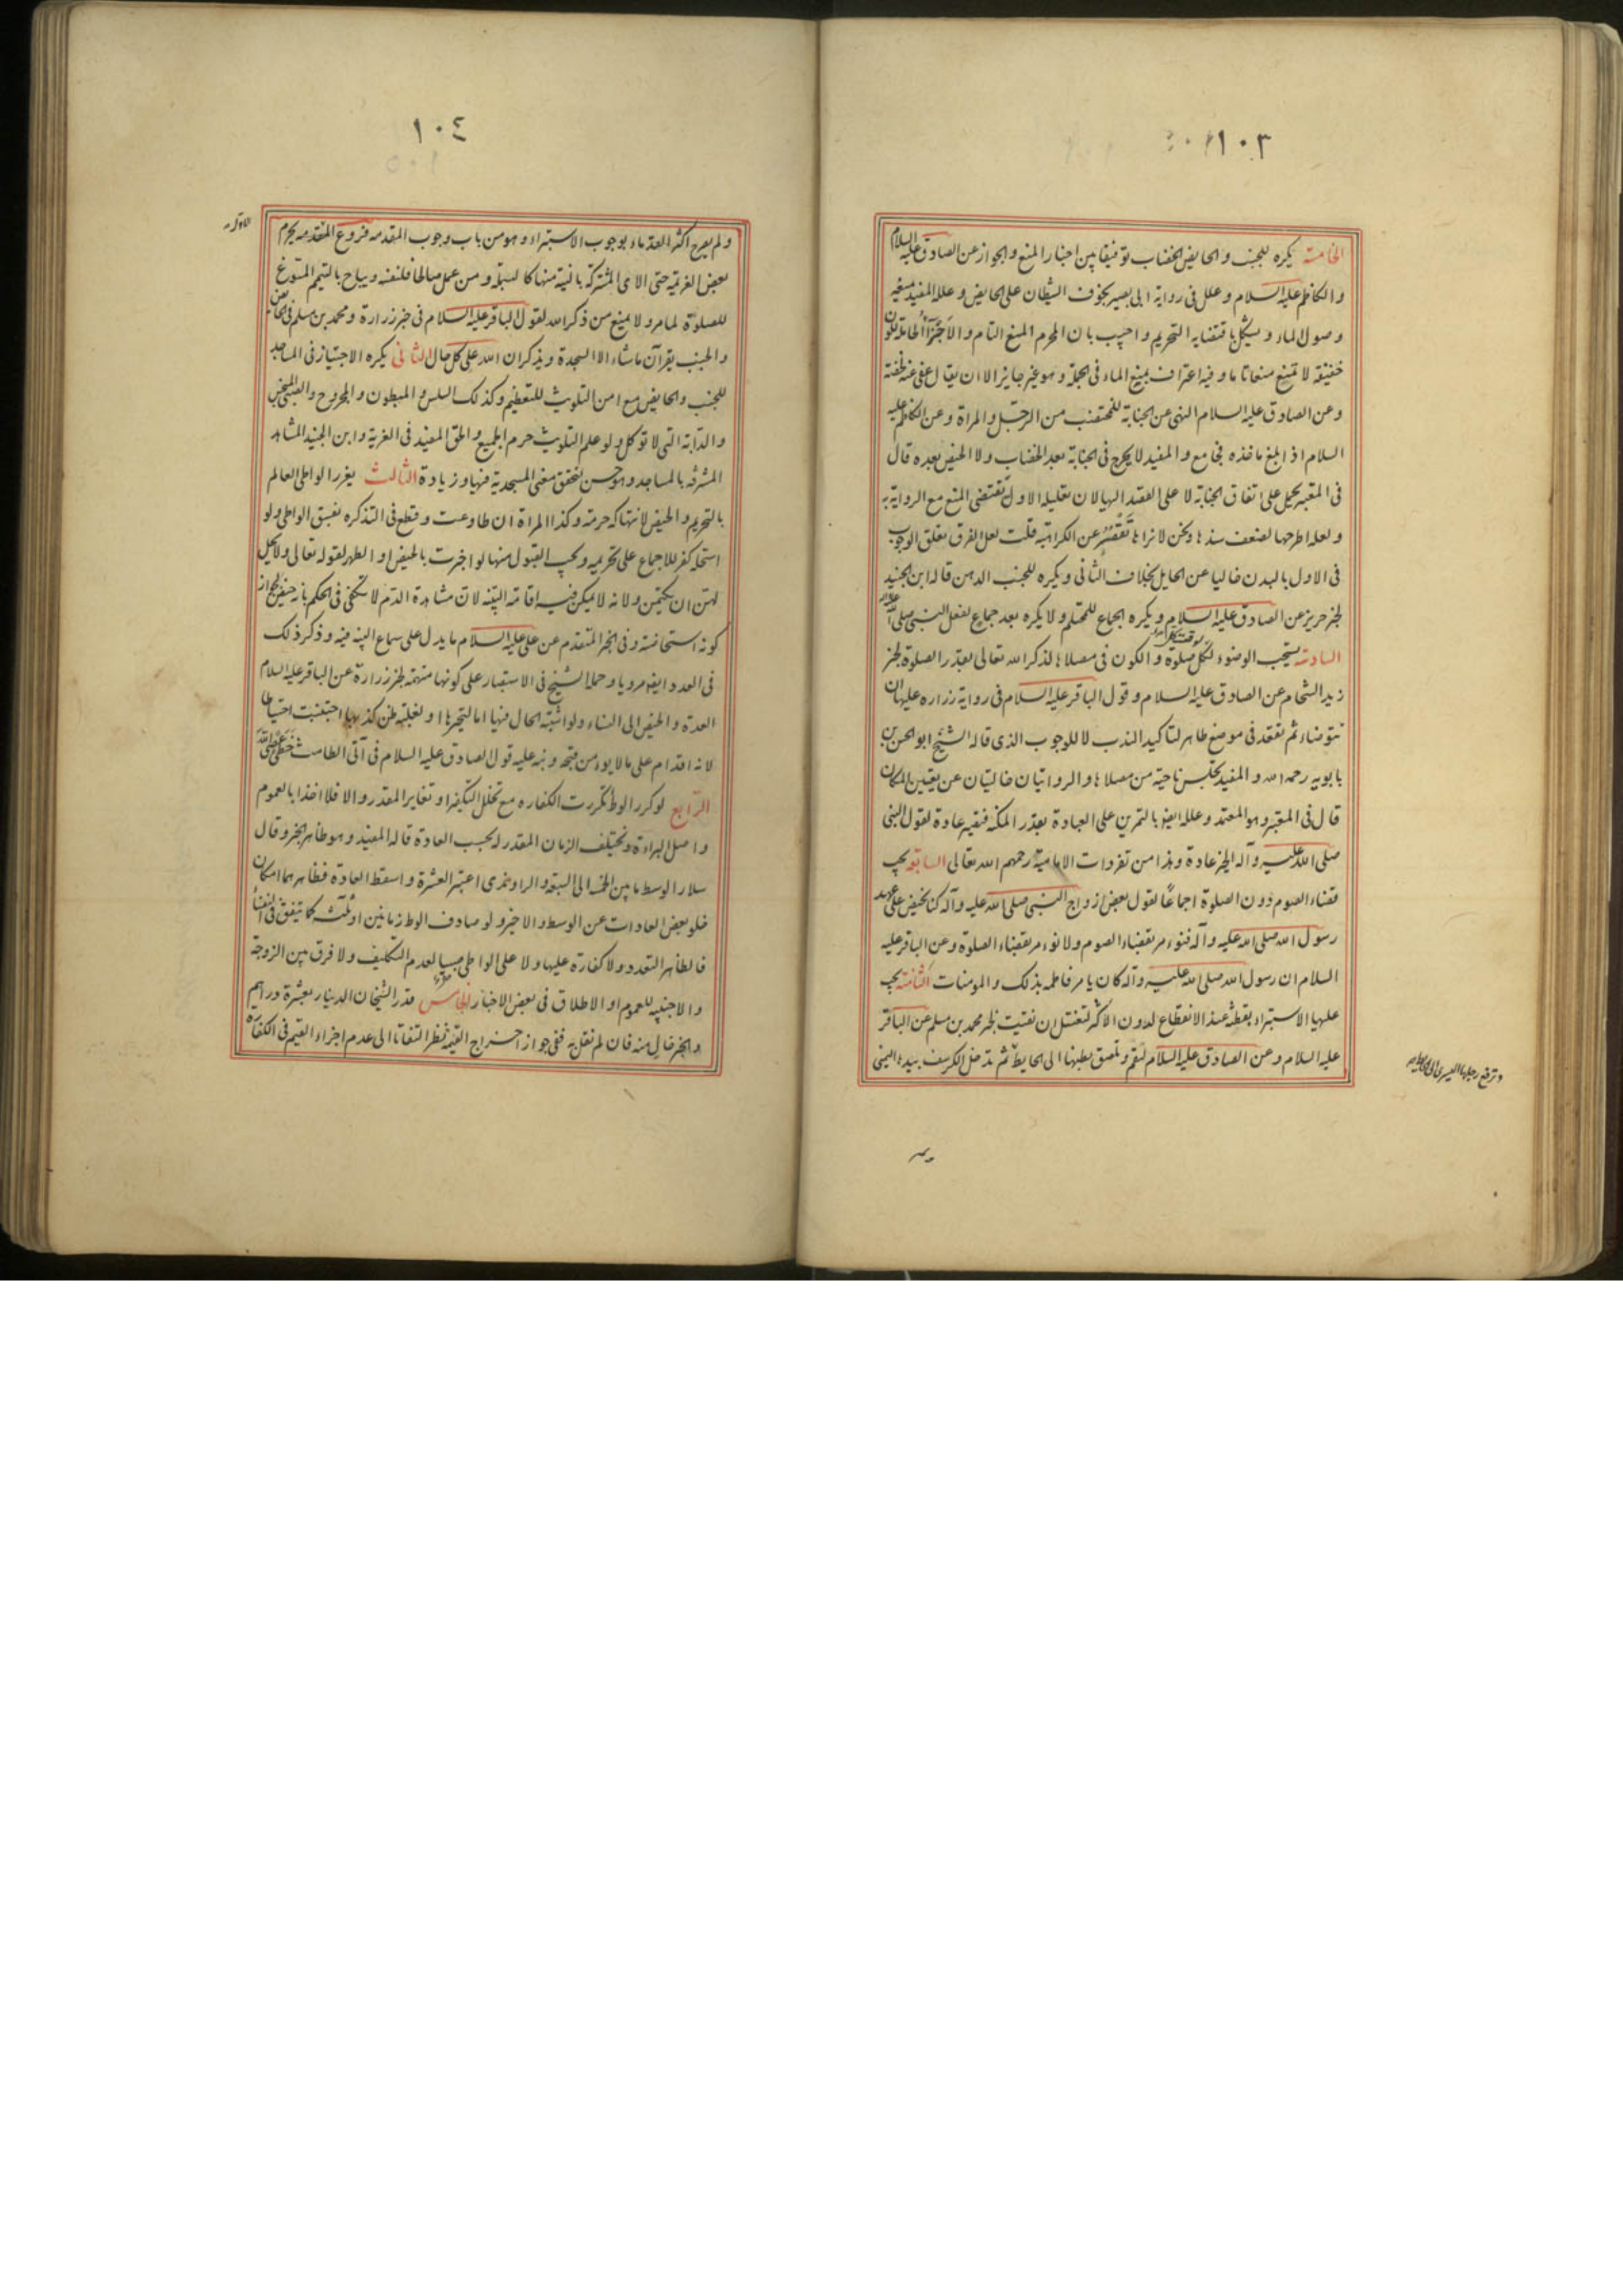 ١٠٣
الخامسة يكره للجنب والحايض الخضاب توفيقا بين اخبار المنع والجواز عن الصادق عليه السلام
والكاظم عليه السلام وعلل فى رواية ابى بصير بخوف الشيطان على الحايض وعلله المفيد بمنعه
وصول الماء ويشكل باقتضايه التحريم واجيب بان المحرم المنع التام والاجزاء الحاملة للون
خفيفة لا تمنع منعا تاما وفيه اعتراف بمنع الماء فى الجملة وهو غير جايز الا ان يقال عفى عنه لخفته
وعن الصادق عليه السلام النهى عن الجنابة للمختضب من الرجل والمراة وعن الكاظم عليه
السلام اذا بلغ ماخذه فجامع والمفيد لا يحرج فى الجنابة بعد الخضاب ولا الحيض بعده قال
فى المعتبر يحمل على اتفاق الجنابة لا على القصد اليها لان تعليله الاول تقتضى المنع مع الرواية به
ولعله اطرحها لضعف سندها ونحن لا نراها تقصر عن الكراهية قلت لعل الفرق تعلق الوجوب
فى الاول بالبدن خاليا عن الحايل بخلاف الثانى ويكره للجنب الدهن قاله ابن الجنيد
لخبر حريز عن الصادق عليه السلام ويكره الجماع للمحتلم ولا يكره بعد جماع لفعل النبى صلى الله عليه واله
السادسة يستحب الوضوء لوقت كل صلوة والكون فى مصلاها لذكر الله تعالى بقدر الصلوة لخبر
زيد الشحام عن الصادق عليه السلام وقول الباقر عليه السلام فى رواية زراره عليها ان
تتوضاء ثم تقعد فى موضع طاهر لتاكيد الندب لا للوجوب الذى قاله الشيخ ابو الحسن بن
بابويه رحمه الله والمفيد تجلس ناحية من مصلاها والروايتان خاليتان عن تعيين المكان
قال فى المعتبر وهو المعتمد وعلله ايضا بالتمرين على العبادة بقدر المكنة فتقيد عادة لقول النبى
صلى الله عليه وآله الخير عادة وهذا من تفردات الامامية رحمهم الله تعالى السابعة يجب
قضاء الصوم دون الصلوة اجماعا لقول بعض ازواج النبى صلى الله عليه وآله كنا نحيض على عهد
رسول الله صلى الله عليه وآله فنومر بقضاء الصوم ولا نومر بقضاء الصلوة وعن الباقر عليه
السلام ان رسول الله صلى الله عليه وآله كان يامر فاطمه بذلك والمومنات الثامنة يجب
عليها الاستبراء بقطنة عند الانقطاع لدون الاكثر لتغتسل ان نقيت لخبر محمد بن مسلم عن الباقر
عليه السلام وعن الصادق عليه السلام لتقم وتلصق بطنها الى الحايط ثم تدخل الكرسف بيدها اليمنى
وترفع رجلها اليسرى الى الحايط
١٠٤
ولم يصرح اكثر القدماء بوجوب الاستبراء وهو من باب وجوب المقدمه فروع المتقدمه يحرم
الاول
بعض العزيمة حتى الاى المشتركة بالنية منها كالبسملة ومن عمل صالحا فلنفسه ويباح بالتيمم المسوغ
للصلوة لما مر ولا يمنع من ذكر الله لقول الباقر عليه السلام فى خبر زرارة ومحمد بن مسلم فى الحايض
والجنب يقرآن ما شاء الا السجدة ويذكران الله على كل حال الثانى يكره الاجتياز فى المساجد
للجنب والحايض مع امن التلويث للتعظيم وكذلك السلس والمبطون والمجروح والصبى المنجس
والدابة التى لا توكل ولو علم التلويث حرم الجميع والحق المفيد فى الغرية وابن الجنيد المشاهد
المشرفة بالمساجد وهو حسن لتحقق معنى المسجدية فيها وزيادة الثالث يعزر الواطى العالم
بالتحريم والحيض لانتهاكه حرمة وكذا المراة ان طاوعت وقطع فى التذكره بفسق الواطى ولو
استحله كفر للاجماع على تحريمه ويجب القبول منها لو اخبرت بالحيض او الطهر لقوله تعالى ولا يحل
لهن ان يكتمن ولانه لا يمكن فيه اقامة البينه لان مشاهدة الدم لا تكفى فى الحكم بانه حيض لجواز
كونه استحاضة وفى الخبر المتقدم عن على عليه السلام ما يدل على سماع البينه فيه وذكر ذلك
فى العدد ايضا مرويا وحمله الشيخ فى الاستبصار على كونها متهمة لخبر زرارة عن الباقر عليه السلام
العدة والحيض الى النساء ولو اشتبه الحال فيها اما لتحيرها او لغلبة ظن كذبها اجتنبت احتياطا
لانه اقدام على ما لا يومن قبحه ونبه عليه قول الصادق عليه السلام فى آتى الطامث خطى عصى الله
الرابع لو كرر الوط تكررت الكفاره مع تخلل التكفير او تغاير المقدر والا فلا اخذا بالعموم
واصل البراءة ويختلف الزمان المقدر له بحسب العادة قاله المفيد وهو ظاهر الخبر وقال
سلار الوسط ما بين الخمسة الى السبعة والراوندى اعتبر العشرة واسقط العادة فظاهرهما امكان
خلو بعض العادات عن الوسط والاخير ولو صادف الوط زمانين او ثلثة كما يتفق فى النفساء
فالظاهر التعدد ولا كفارة عليها ولا على الواطى صبيا لعدم التكليف ولا فرق بين الزوجة
والاجنبيه للعموم او الاطلاق فى بعض الاخبار الخامس قدر الشيخان الدينار بعشرة دراهم
والخبر خال منه فان لم نقل به ففى جواز اخراج القيمة نظر التفاتا الى عدم اجزاء القيم فى الكفارة